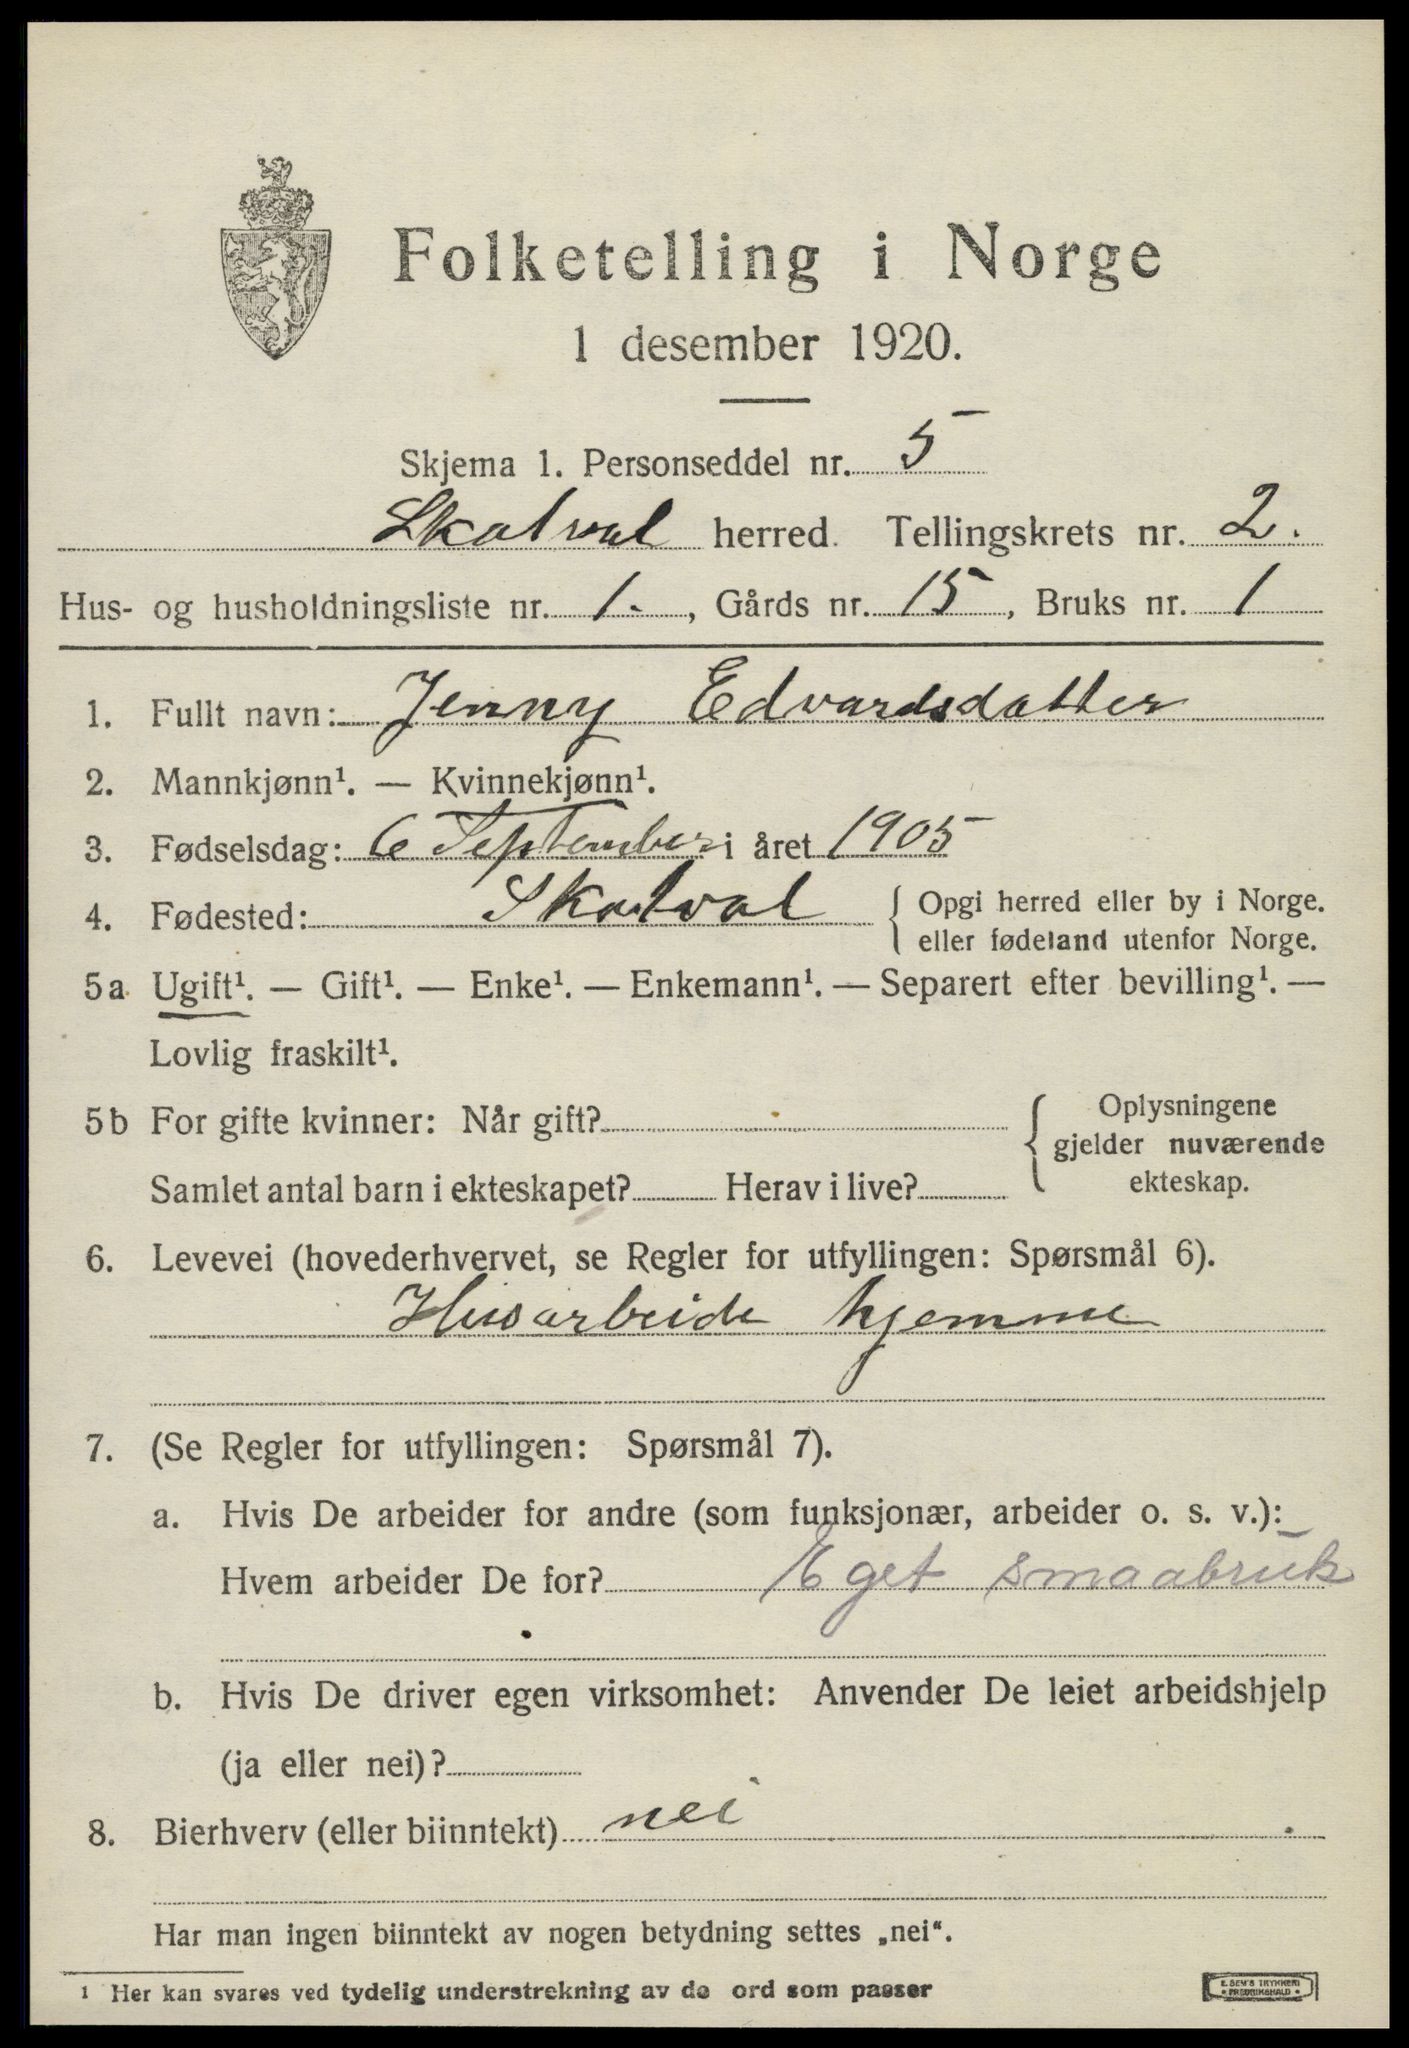 Folketelling i Norge
1 desember 1920.
Skjema 1. Personseddel nr. 5
Skatval herred. Tellingskrets nr. 2.
Hus- og husholdningsliste nr. 1., Gårds nr. 15, Bruks nr. 1
1. Fullt navn: Jenny Edvardsdatter
2. Mannkjønn¹. — Kvinnekjønn¹.
3. Fødselsdag: 6 September i året 1905
4. Fødested: Skatval { Opgi herred eller by i Norge.
eller fødeland utenfor Norge.
5a Ugift¹. — Gift¹. — Enke¹. — Enkemann¹. — Separert efter bevilling¹. —
Lovlig fraskilt¹.
5b For gifte kvinner: Når gift? { Oplysningene
gjelder nuværende
Samlet antal barn i ekteskapet? Herav i live? ekteskap.
6. Levevei (hovederhvervet, se Regler for utfyllingen: Spørsmål 6).
Husarbeide hjemme
7. (Se Regler for utfyllingen: Spørsmål 7).
a. Hvis De arbeider for andre (som funksjonær, arbeider o. s. v.):
Hvem arbeider De for? Eget smaabruk
b. Hvis De driver egen virksomhet: Anvender De leiet arbeidshjelp
(ja eller nei)?
8. Bierhverv (eller biinntekt) nei
Har man ingen biinntekt av nogen betydning settes „nei“.
1 Her kan svares ved tydelig understrekning av de ord som passer
E. SEM'S TRYKKERI
• FREDRIKSHALD •